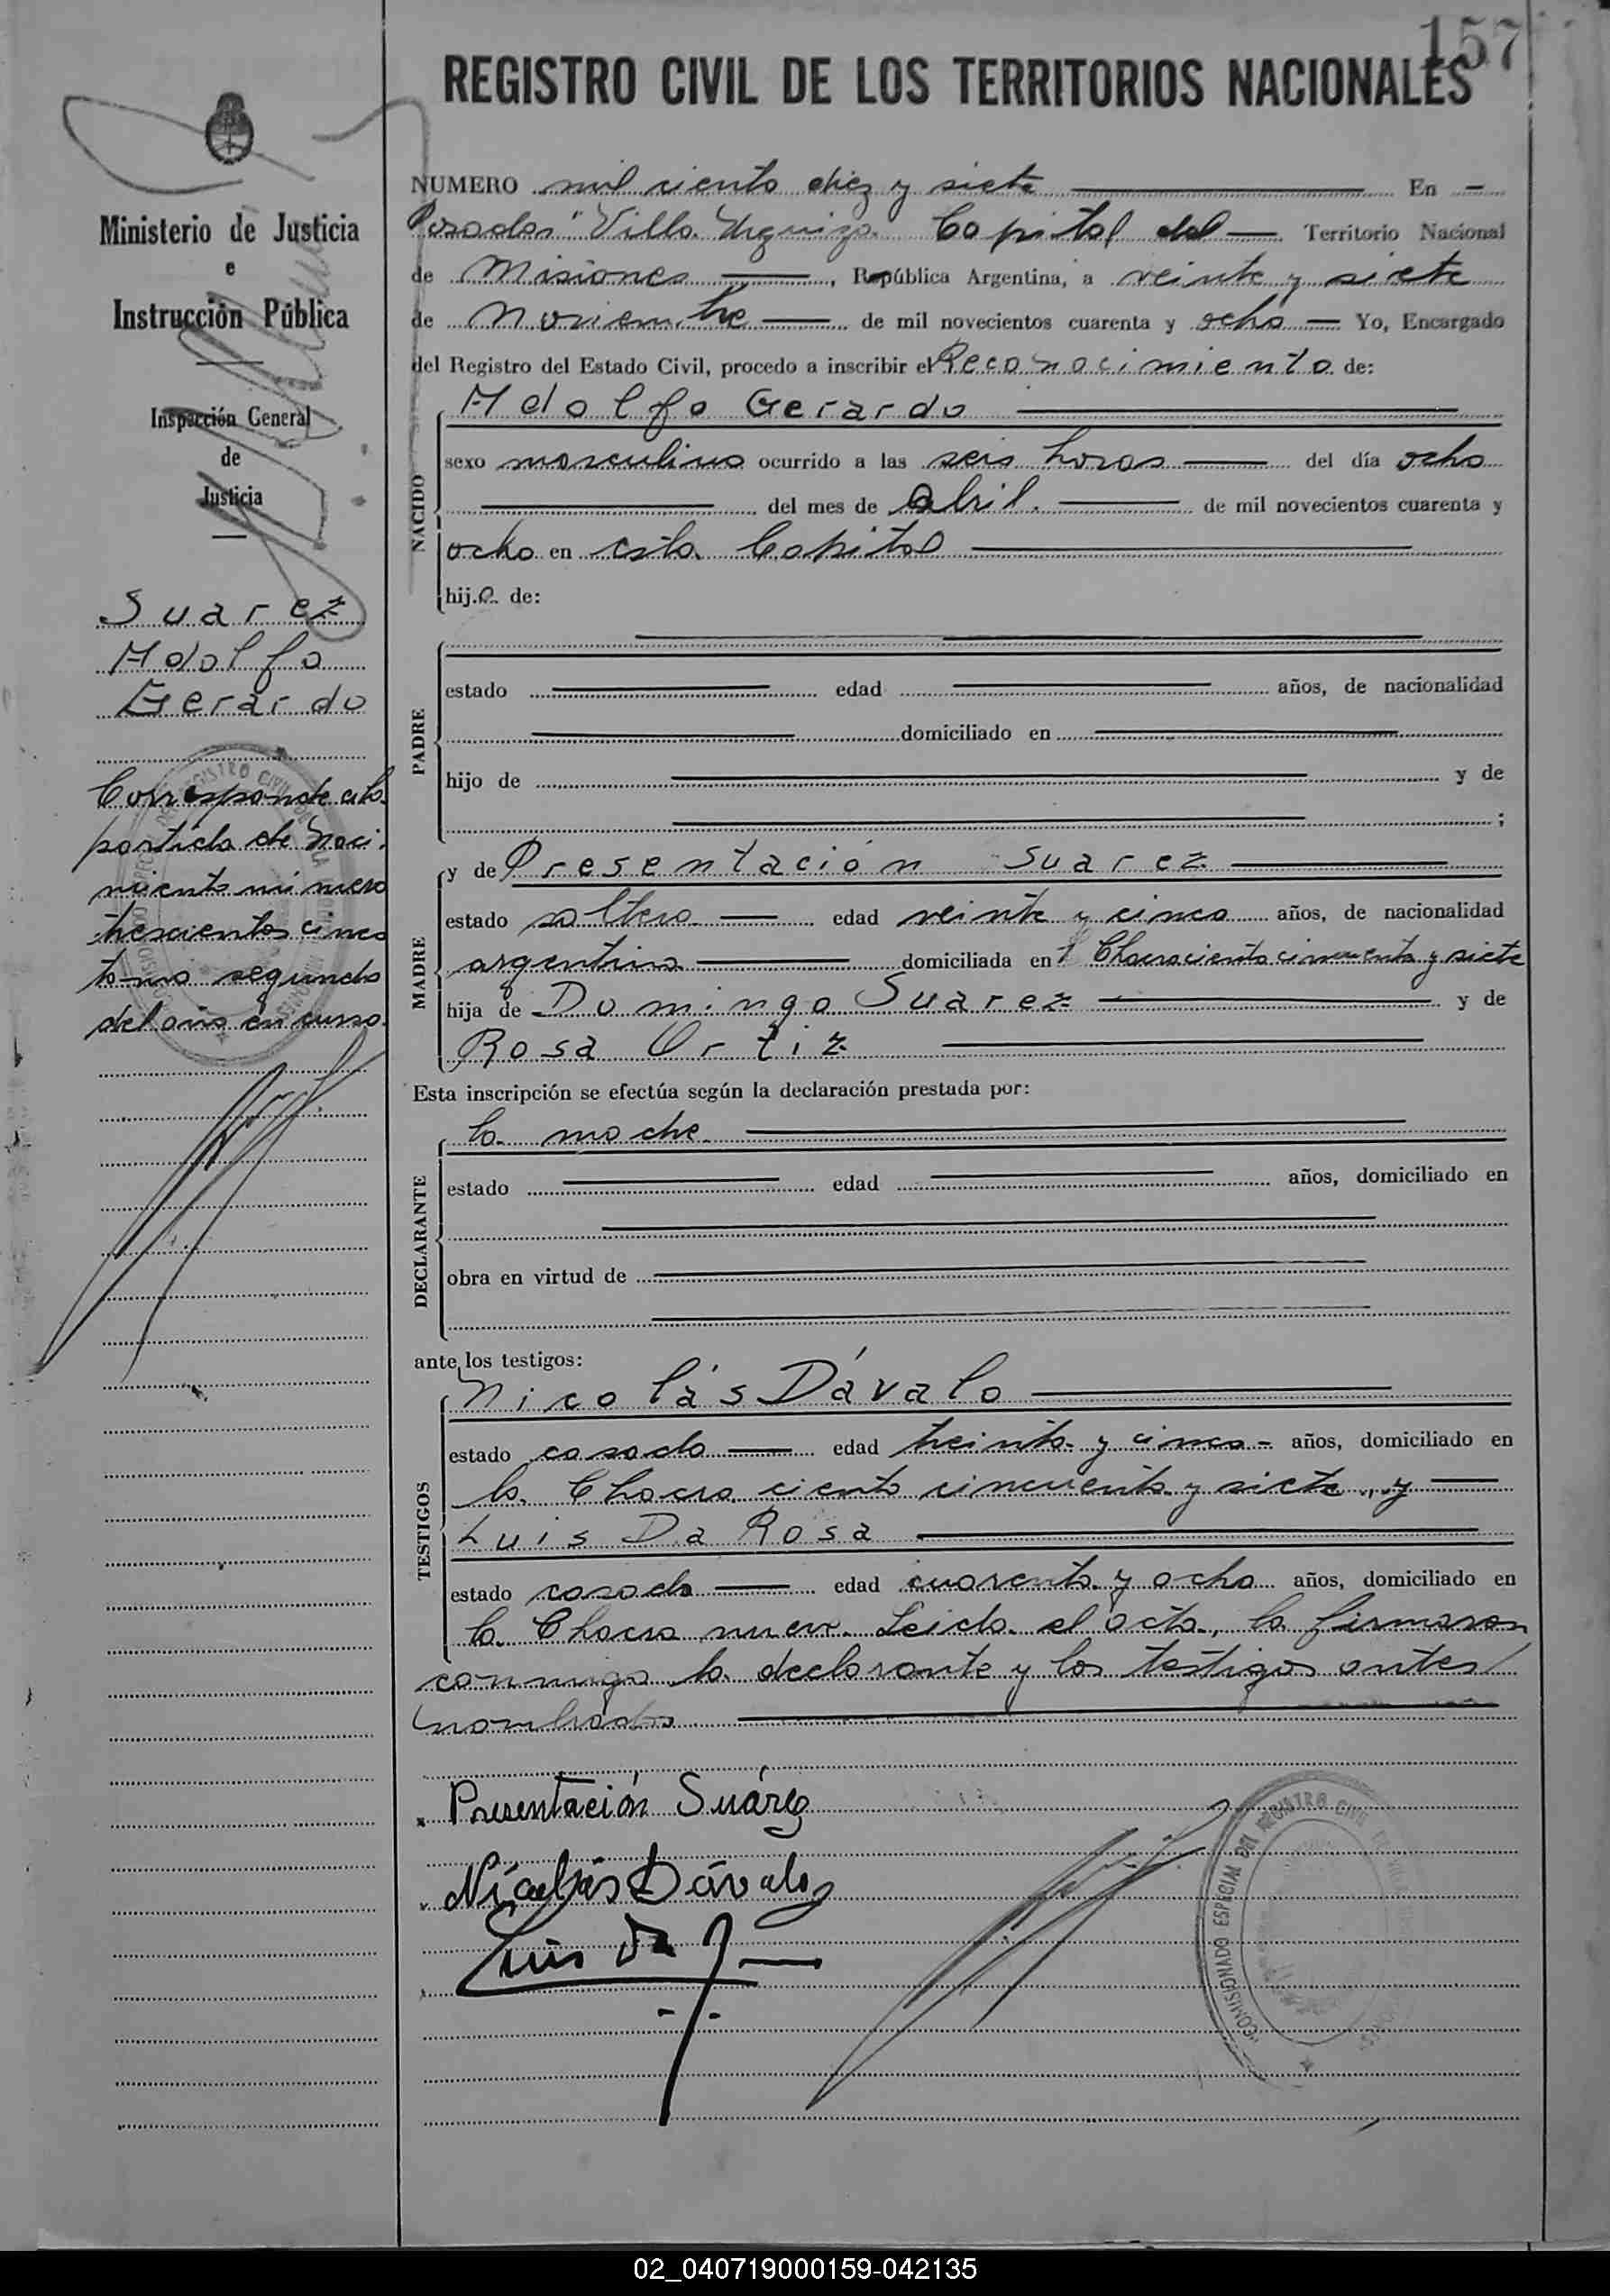 157
REGISTRO CIVIL DE LOS TERRITORIOS NACIONALES
Ministerio de Justicia
e
Instrucción Pública
Inspección General
de
Justicia
Suarez
Adolfo
Gerardo
Corresponde a la
partida de Naci-
miento número
trescientos cinco
tomo segundo
del año en curso.
NUMERO mil ciento diez y siete En
Posadas "Villa Urquiza Capital del Territorio Nacional
de Misiones, República Argentina, a veinte y siete
de Noviembre de mil novecientos cuarenta y ocho Yo, Encargado
del Registro del Estado Civil, procedo a inscribir el Reconocimiento de:
NACIDO
Adolfo Gerardo
sexo masculino ocurrido a las seis horas del día ocho
del mes de Abril. de mil novecientos cuarenta y
ocho en esta Capital
hijo de:
PADRE
estado edad años, de nacionalidad
domiciliado en
hijo de y de
;
MADRE
y de Presentación Suarez
estado soltera edad veinte y cinco años, de nacionalidad
argentina domiciliada en Chacra ciento cincuenta y siete
hija de Domingo Suarez y de
Rosa Ortiz
Esta inscripción se efectúa según la declaración prestada por:
DECLARANTE
la madre
estado edad años, domiciliado en
obra en virtud de
ante los testigos:
TESTIGOS
Nicolás Dávalo
estado casado edad treinta y cinco años, domiciliado en
la Chacra ciento cincuenta y siete, y
Luis Da Rosa
estado casado edad cuarenta y ocho años, domiciliado en
la Chacra nueve. Leida el acta, la firmaron
conmigo la declarante y los testigos antes
nombrados
Presentación Suárez
Nicolás Dávalos
Luis Da
COMISIONADO ESPECIAL DEL REGISTRO CIVIL
02_040719000159-042135